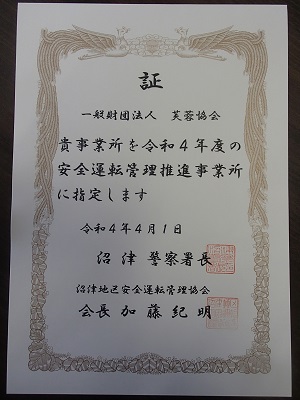 証
一般財団法人　芙蓉協会
貴事業所を令和4年度の
安全運転管理推進事業所
に指定します
令和4年4月1日
沼津警察署長
沼津地区安全運転管理協会
会長 加藤紀明